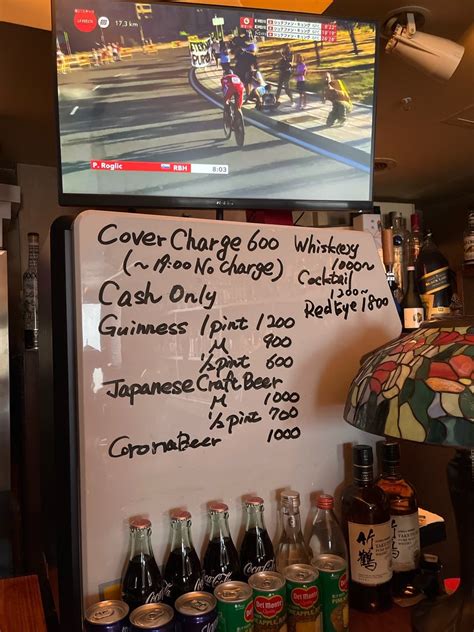 17,3 km
P. Roglic
RBH
8:03
Cover Charge 600
(~19:00 No Charge)
Cash Only
Guinness 1pint 1200
M 900
1/2 pint 600
Japanese Craft Beer
M 1000
1/2 pint 700
Corona Beer 1000
Whiskey
1000~
Cocktail
1200~
RedEye 1800
竹鶴
竹鶴
Coca-Cola
Del Monte
Del Monte
Del Monte
Del Monte